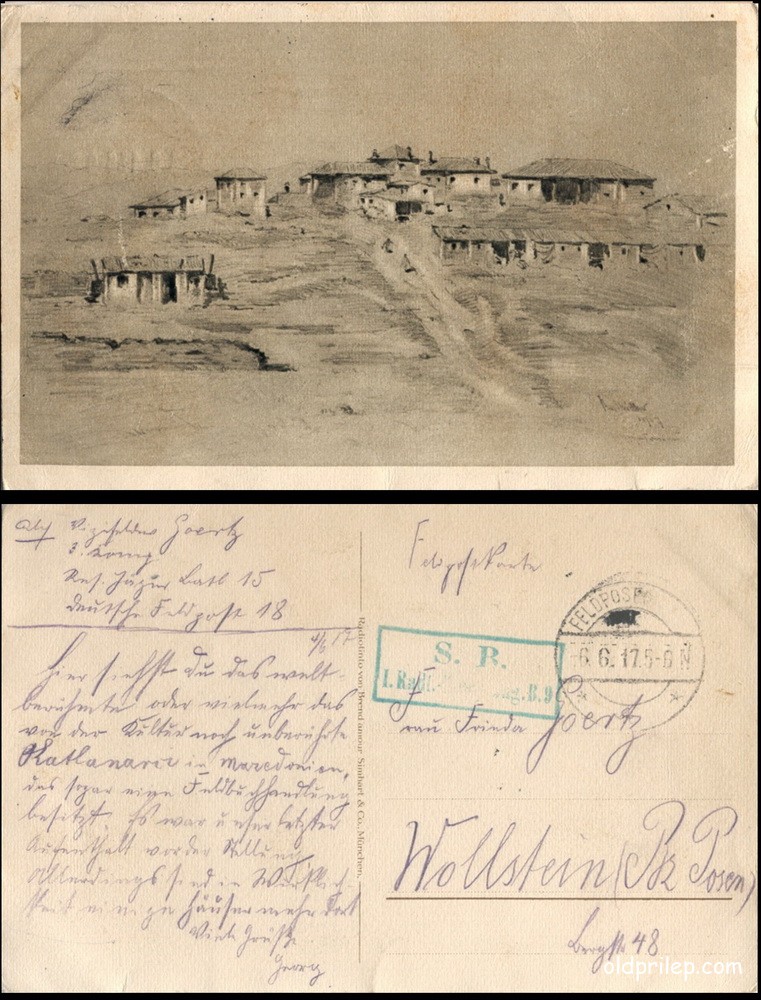 Abs Vizefeldw Goertz
3. Komp
Res. Jäger Batl 15
deutsche Feldpost 18
4/6 17
Hier siehst du das welt-
berühmte oder vielmehr das
von der Kultur noch unberührte
Katlanarie in Macedonien,
das sogar eine Feldbuchhandlung
besitzt. Es war unser letzter
Aufenthalt vor der Stellung
Allerdings sind in Wirklich-
keit einige Häuser mehr dort
Viele Grüße
Georg
Radiotinto von Brend'amour Simhart & Co., München.
Feldpostkarte
S. B.
I. Batl.
FELDPOST
6. 6. 17. 5-6 N
Frau Frieda Goertz
Wollstein (Bz Posen)
Bergstr 48
oldprilep.com